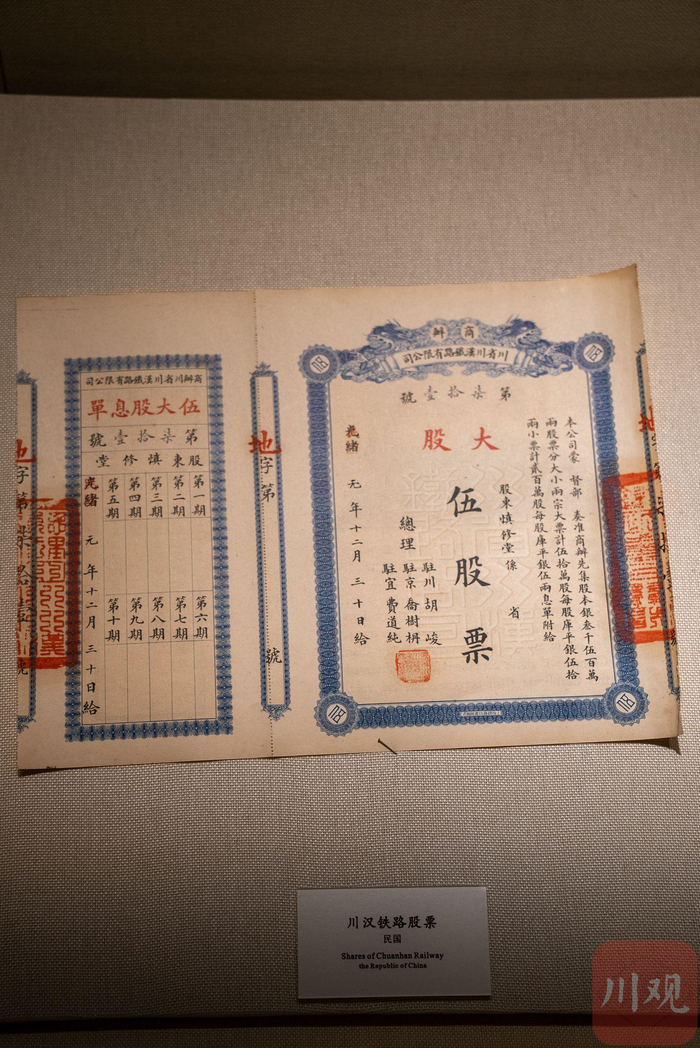 商辦
川省川漢鐵路有限公司
第柒拾壹號
大股
本公司蒙 督部 奏准商辦先集股本銀叁千伍百萬
兩股票分大小兩宗大票計伍拾萬股每股庫平銀伍拾
兩小票計貳百萬股每股庫平銀伍兩息單附給
股東慎修堂係 省
伍股票
總理
駐川胡峻
駐京喬樹枏
駐宜費道純
光緒 元年十二月三十日給
地字第 號
商辦川省川漢鐵路有限公司
伍大股息單
第柒拾壹號
股東慎修堂
第一期 第六期
第二期 第七期
第三期 第八期
第四期 第九期
第五期 第十期
光緒 元年十二月三十日給
川汉铁路股票
民国
Shares of Chuanhan Railway
the Republic of China
川观